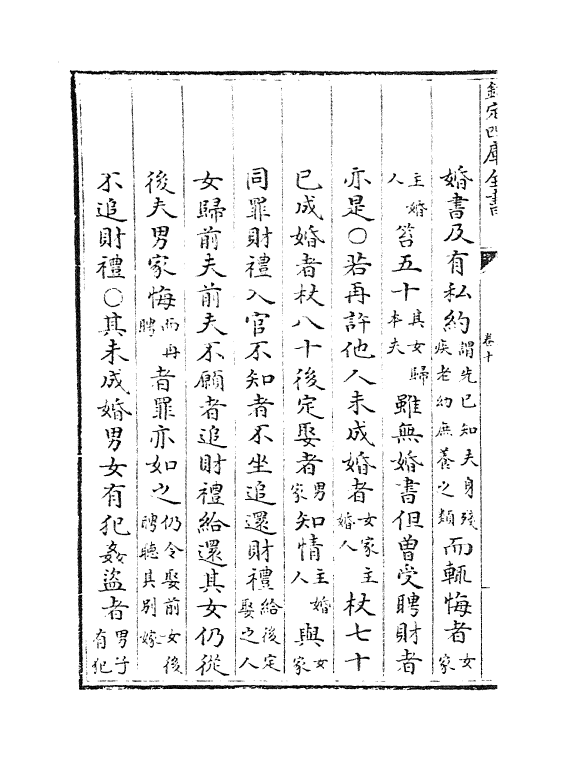 欽定四庫全書
卷十
婚書及有私約謂先已知夫身殘疾老幼庶養之類而輒悔者女家
主婚人笞五十其女歸本夫雖無婚書但曽受聘財者
亦是〇若再許他人未成婚者女家主婚人杖七十
已成婚者杖八十後定娶者男家知情主婚人與女家
同罪財禮入官不知者不坐追還財禮給後定娶之人
女歸前夫前夫不願者追財禮給還其女仍從
後夫男家悔而再聘者罪亦如之仍令娶前女後聘聴其别嫁
不追財禮〇其未成婚男女有犯姦盗者男子有犯